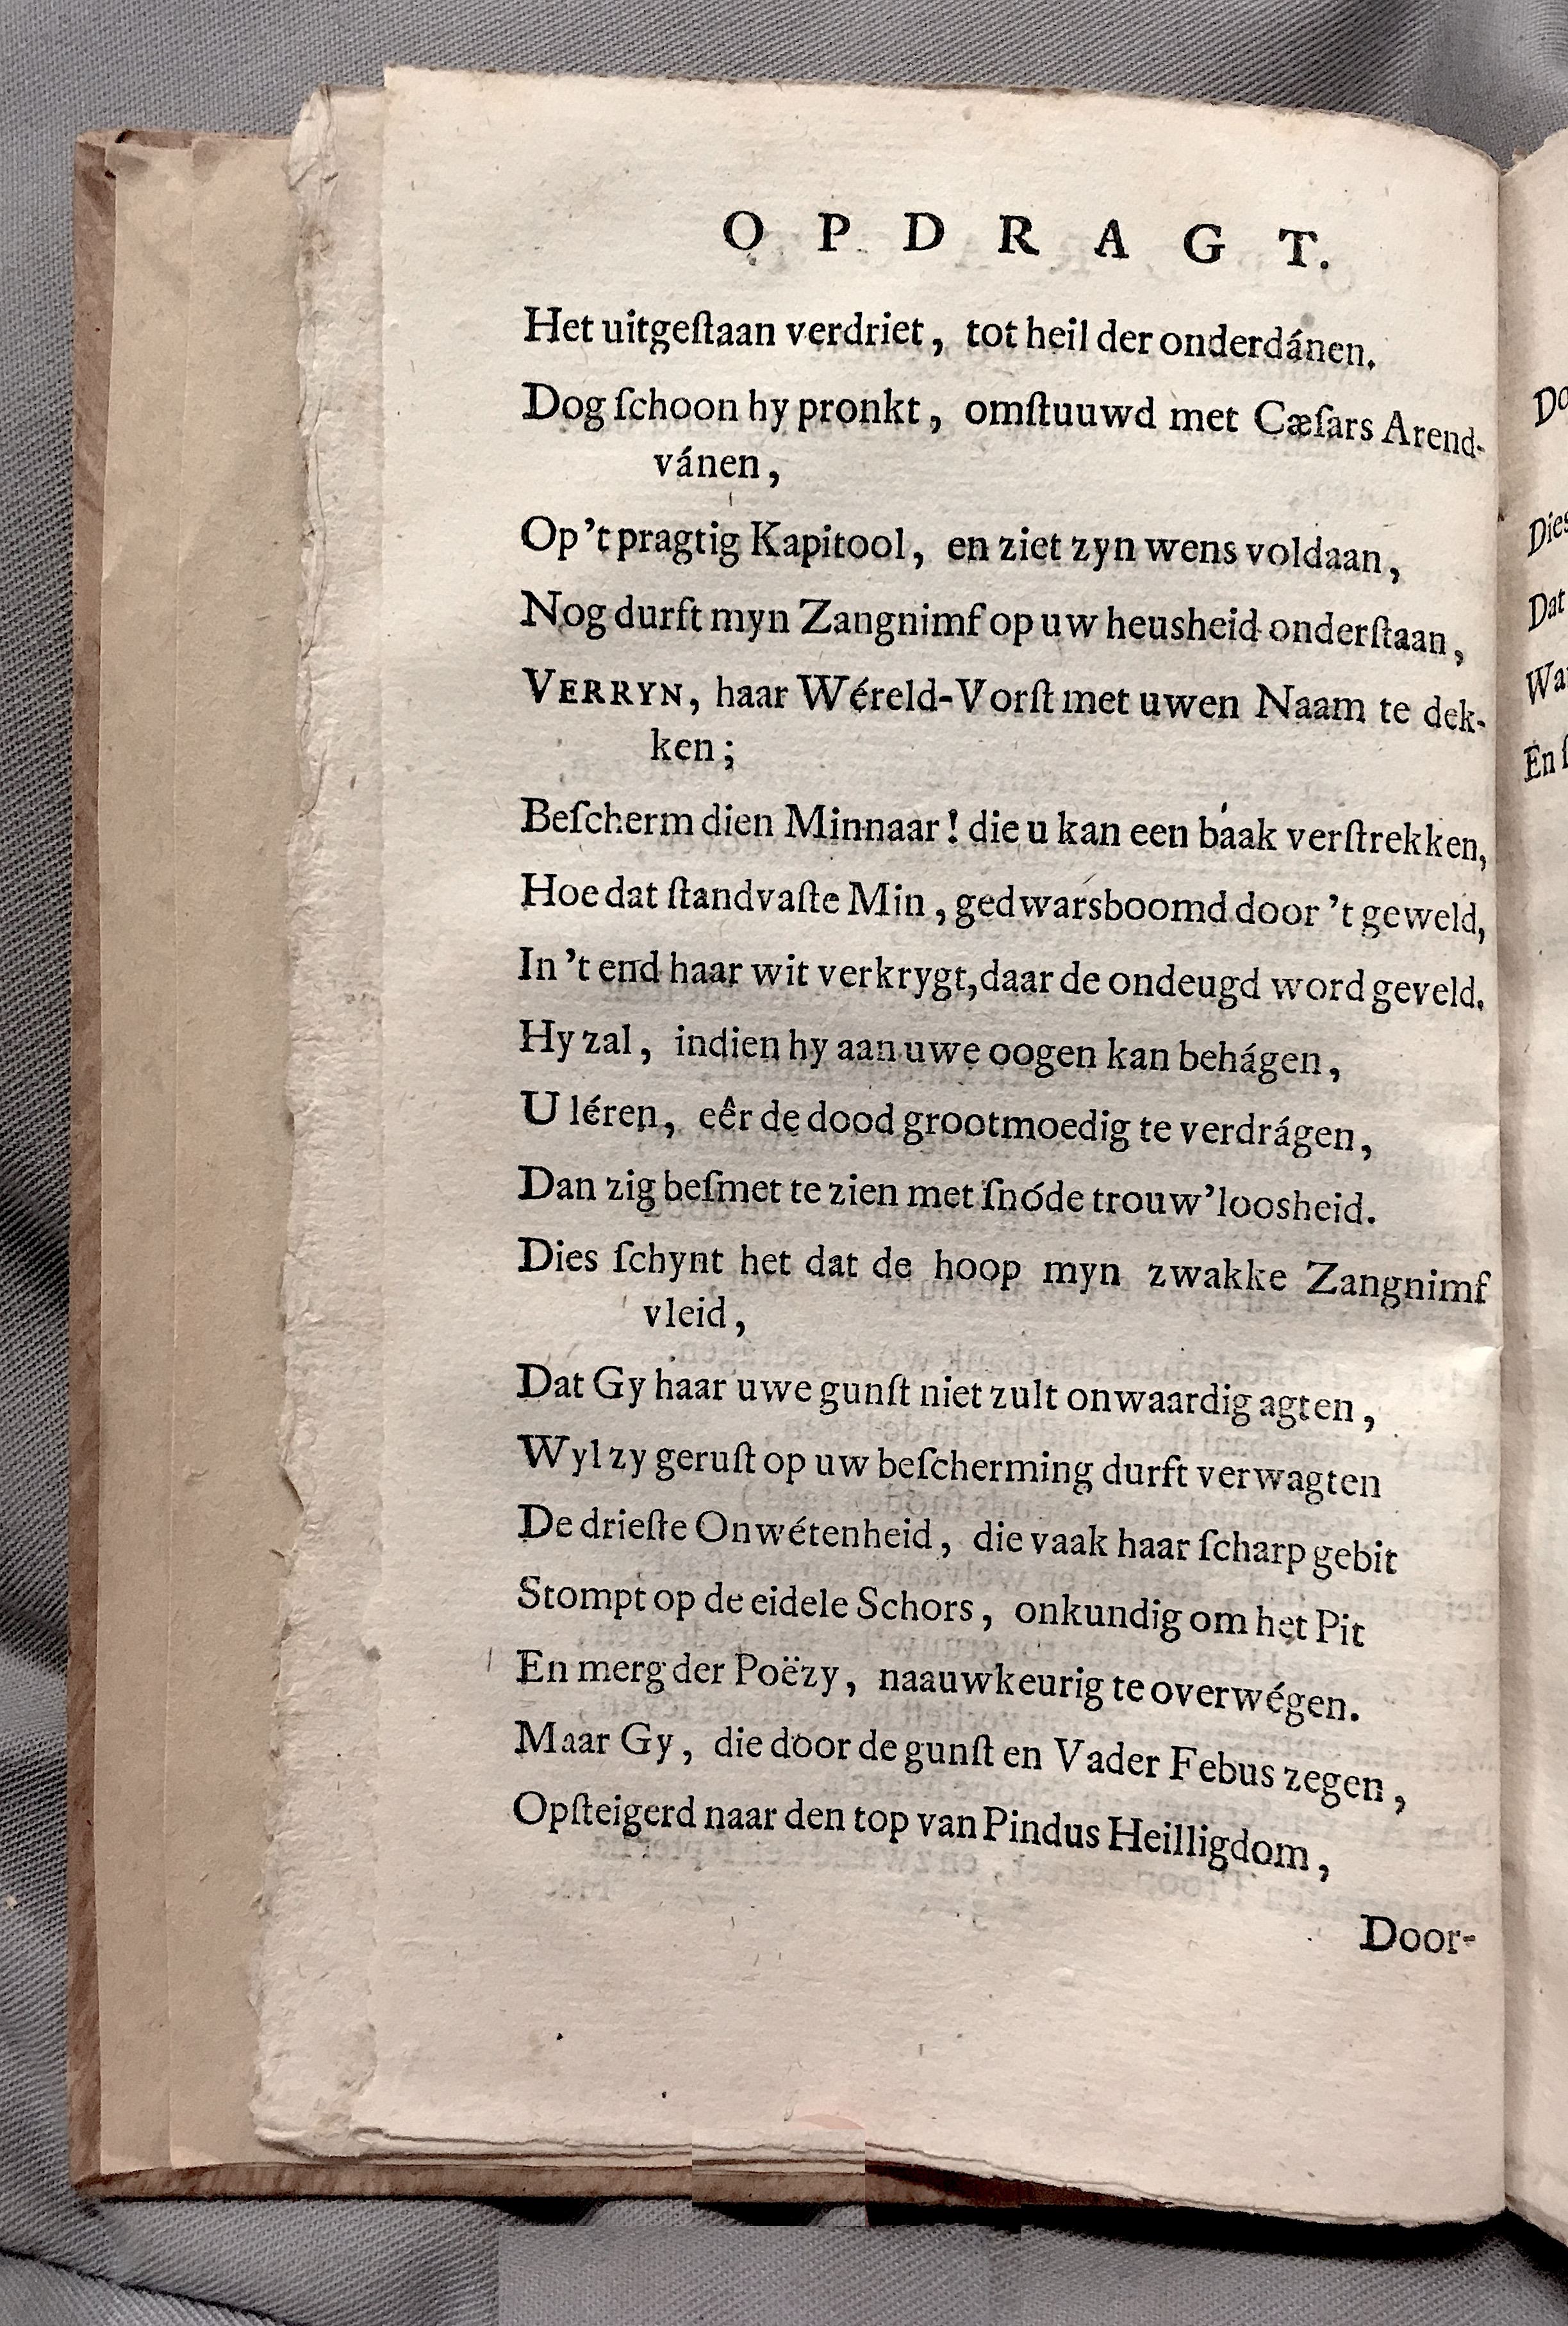 OPDRAGT.
Het uitgeſtaan verdriet, tot heil der onderdánen.
Dog ſchoon hy pronkt, omſtuuwd met Cæſars Arend-
vánen,
Op 't pragtig Kapitool, en ziet zyn wens voldaan,
Nog durft myn Zangnimf op uw heusheid onderſtaan,
VERRYN, haar Wéreld-Vorſt met uwen Naam te dek-
ken;
Beſcherm dien Minnaar! die u kan een báak verſtrekken,
Hoe dat ſtandvaſte Min, gedwarsboomd door 't geweld,
In 't end haar wit verkrygt, daar de ondeugd word geveld.
Hy zal, indien hy aan uwe oogen kan behágen,
U léren, eêr de dood grootmoedig te verdrágen,
Dan zig beſmet te zien met ſnóde trouw'loosheid.
Dies ſchynt het dat de hoop myn zwakke Zangnimf
vleid,
Dat Gy haar uwe gunſt niet zult onwaardig agten,
Wyl zy geruſt op uw beſcherming durft verwagten
De drieſte Onwétenheid, die vaak haar ſcharp gebit
Stompt op de eidele Schors, onkundig om het Pit
En merg der Poëzy, naauwkeurig te overwégen.
Maar Gy, die door de gunſt en Vader Febus zegen,
Opſteigerd naar den top van Pindus Heilligdom,
Door-
Dies
Dat